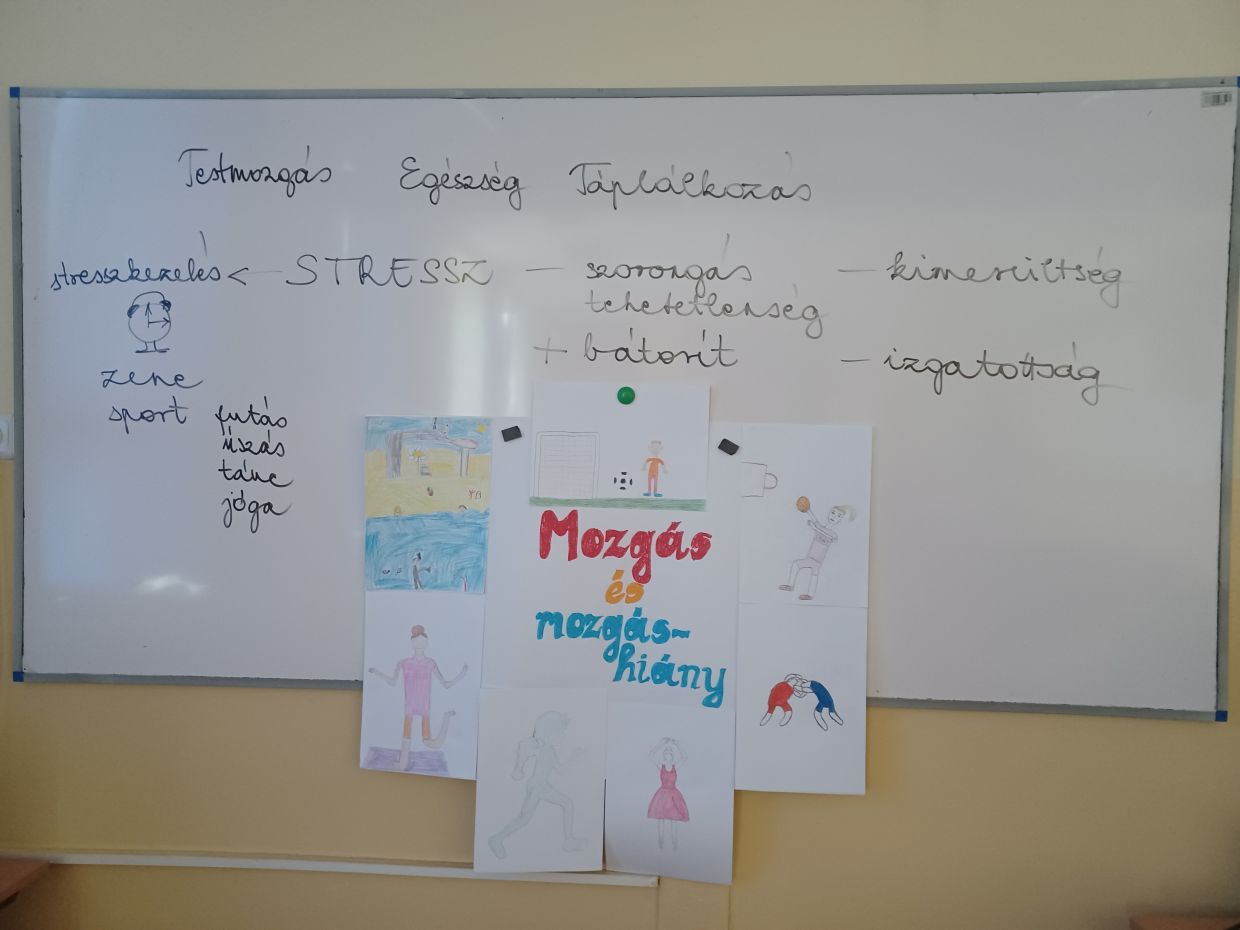 Testmozgás Egészség Táplálkozás
stresszkezelés <— STRESSZ — szorongás — kimerültség
tehetetlenség
+ bátorít — izgatottság
zene
sport futás
úszás
tánc
jóga
Mozgás
és
mozgás-
hiány